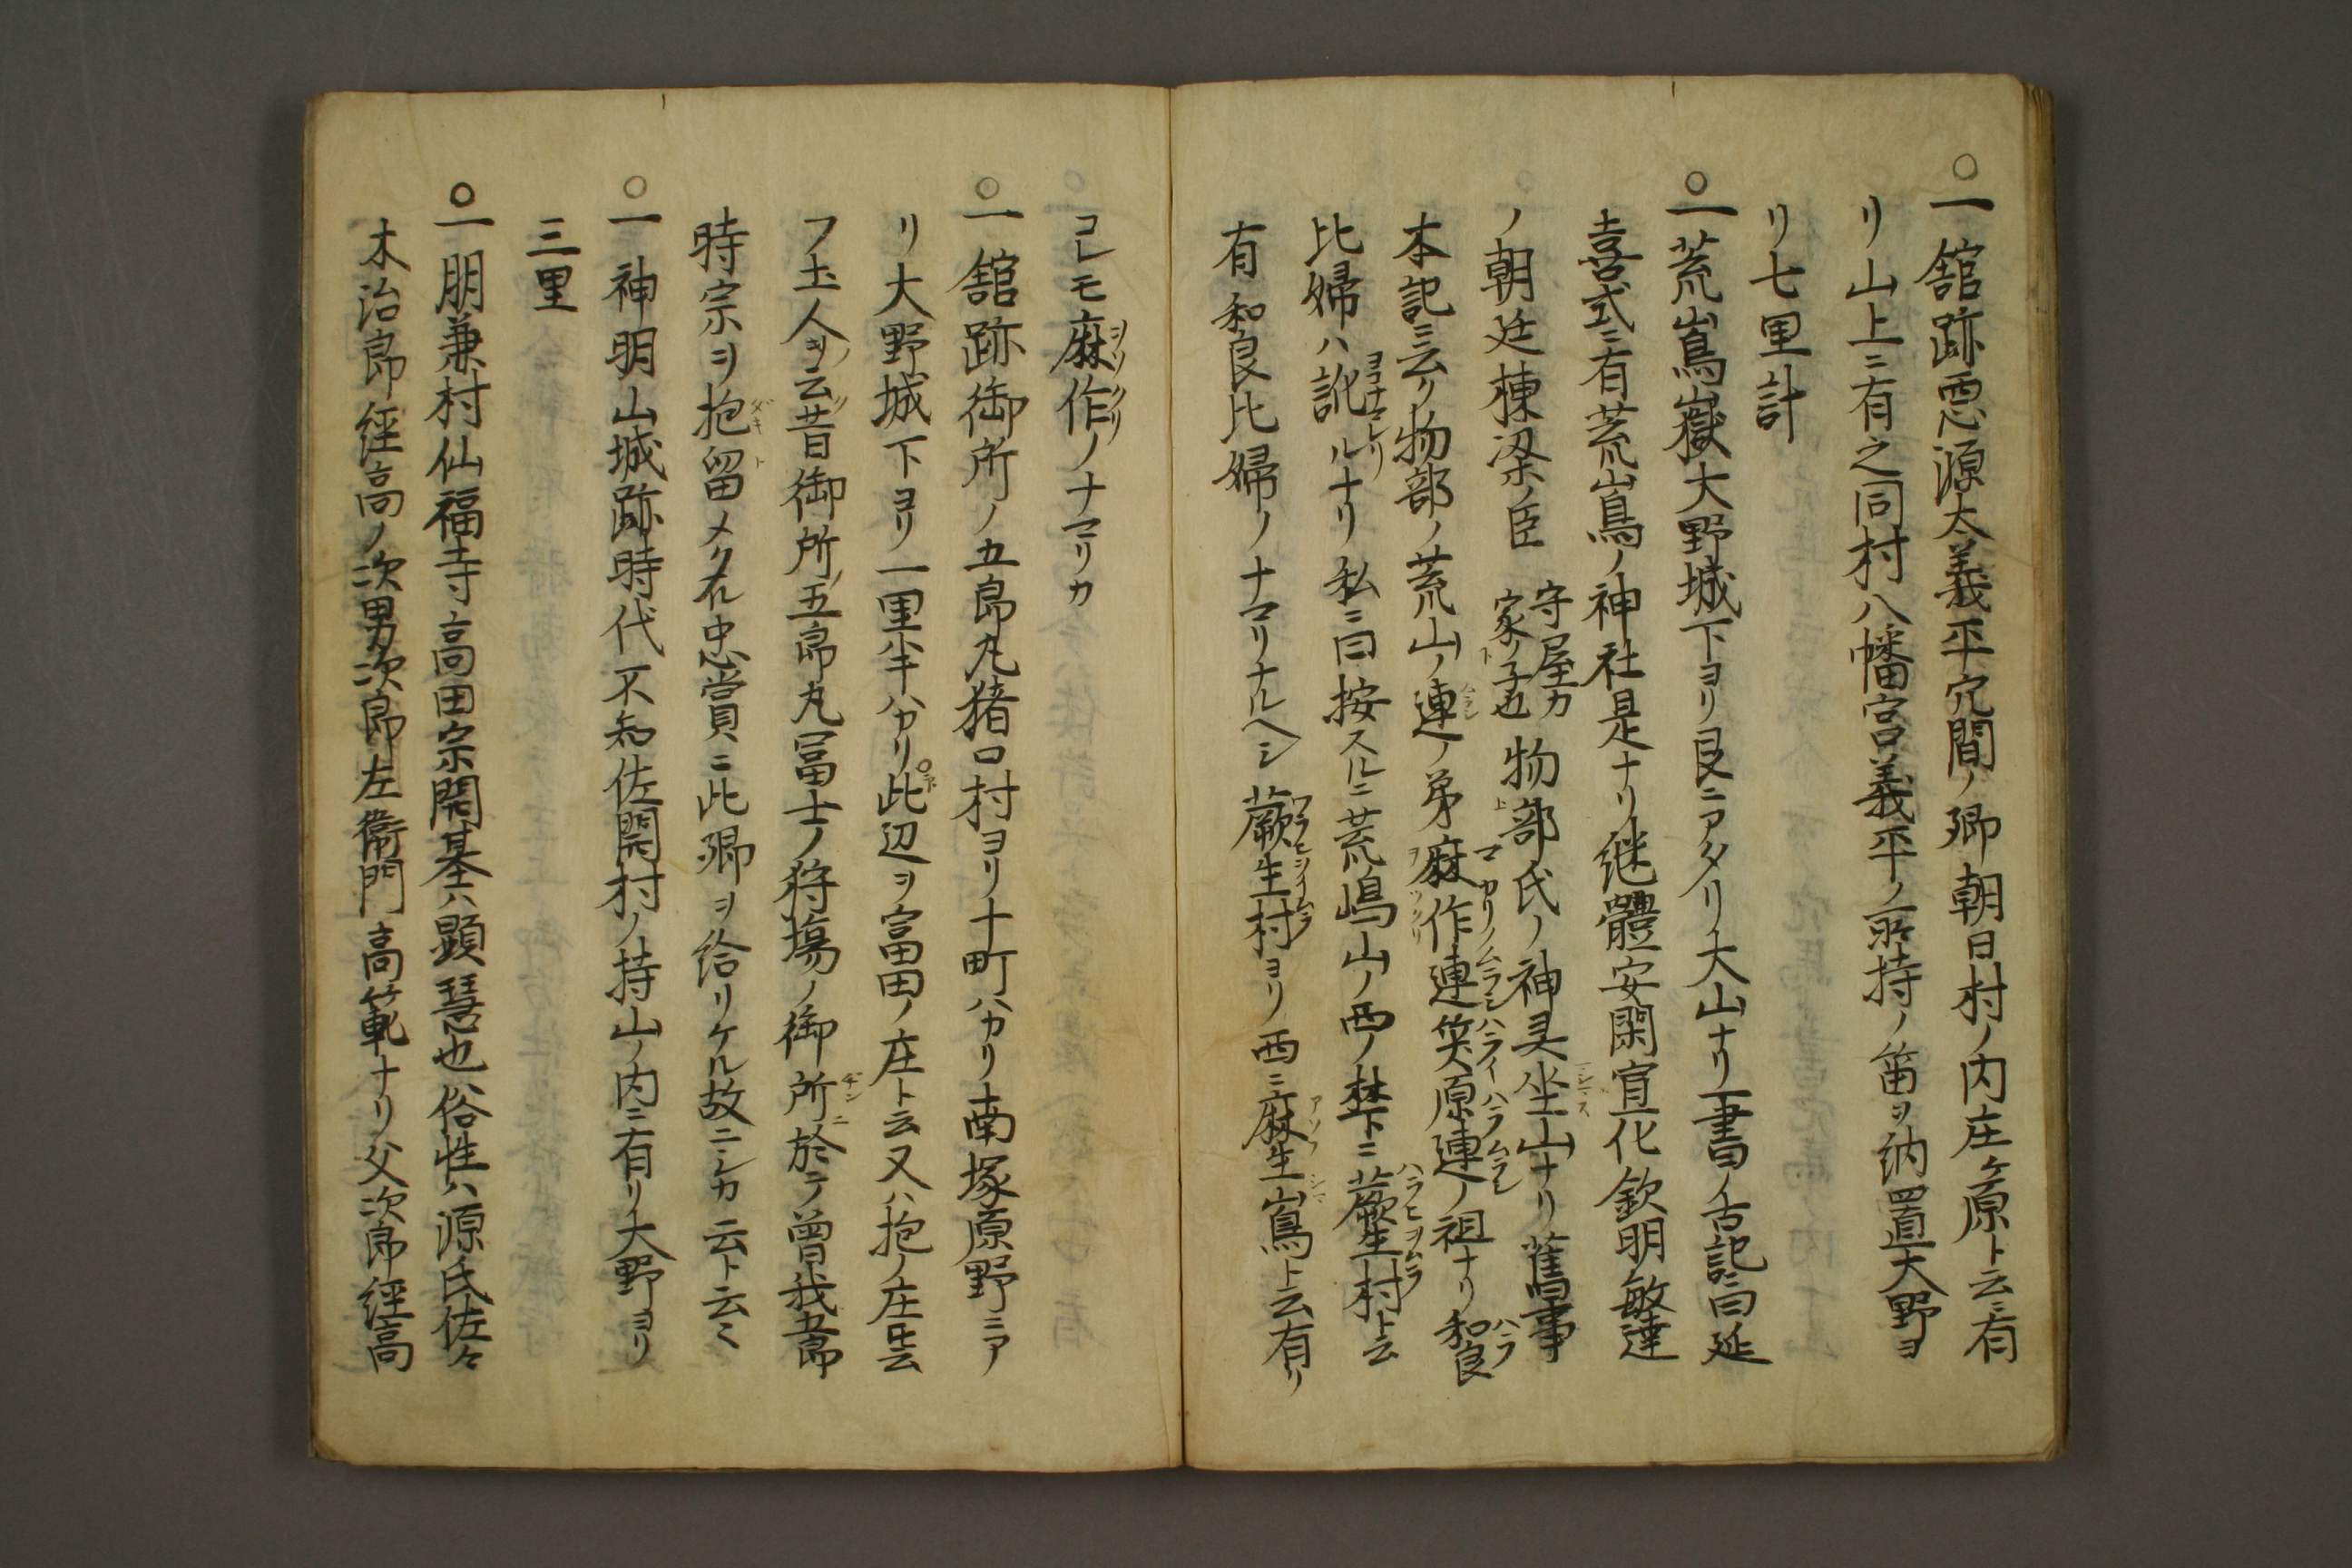 ○一舘跡悪源太義平穴間ノ郷朝日村ノ内庄ケ原ト云ニ有
リ山上ニ有之同村八幡宮義平ノ所持ノ笛ヲ納置大野ヨ
リ七里計
○一荒嶌嶽大野城下ヨリ艮ニアタリ大山ナリ一書ノ古記ニ曰延
喜式ニ有荒嶌ノ神社是ナリ継體安閑宣化欽明敏達
ノ朝廷棟梁ノ臣 守屋カ家ノ子也 物部氏ノ神灵坐山ナリ舊事
本記ニ云ク物部ノ荒山ノ連ノ弟麻作連笶原連ノ祖ナリ和良
比婦ハ訛ルナリ私ニ曰按スルニ荒嶋山ノ西ノ梺下ニ蕨生村ト云
有和良比婦ノナマリナルヘシ蕨生村ヨリ西ニ麻生嶌ト云有リ
コレモ麻作ノナマリカ
○一舘跡御所ノ五郎丸猪口村ヨリ十町ハカリ南塚原野ニア
リ大野城下ヨリ一里半ハカリ此辺ヲ富田ノ庄ト云又ハ抱ノ庄トモ云
フ土人ノ云昔御所ノ五郎丸冨士ノ狩塲ノ御所ニ於テ曽我五郎
時宗ヲ抱留メタル忠賞ニ此郷ヲ給リケル故ニシカ云ト云々
○一神明山城跡時代不知佐開村ノ持山ノ内ニ有リ大野ヨリ
三里
○一朋兼村仙福寺高田宗開基ハ顕慧也俗性ハ源氏佐々
木治郎経高ノ次男次郎左衛門高範ナリ父次郎経高